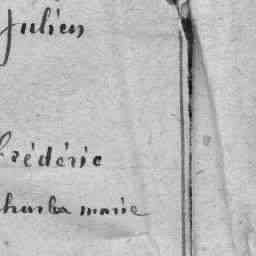 Julien
frédéric
charles marie